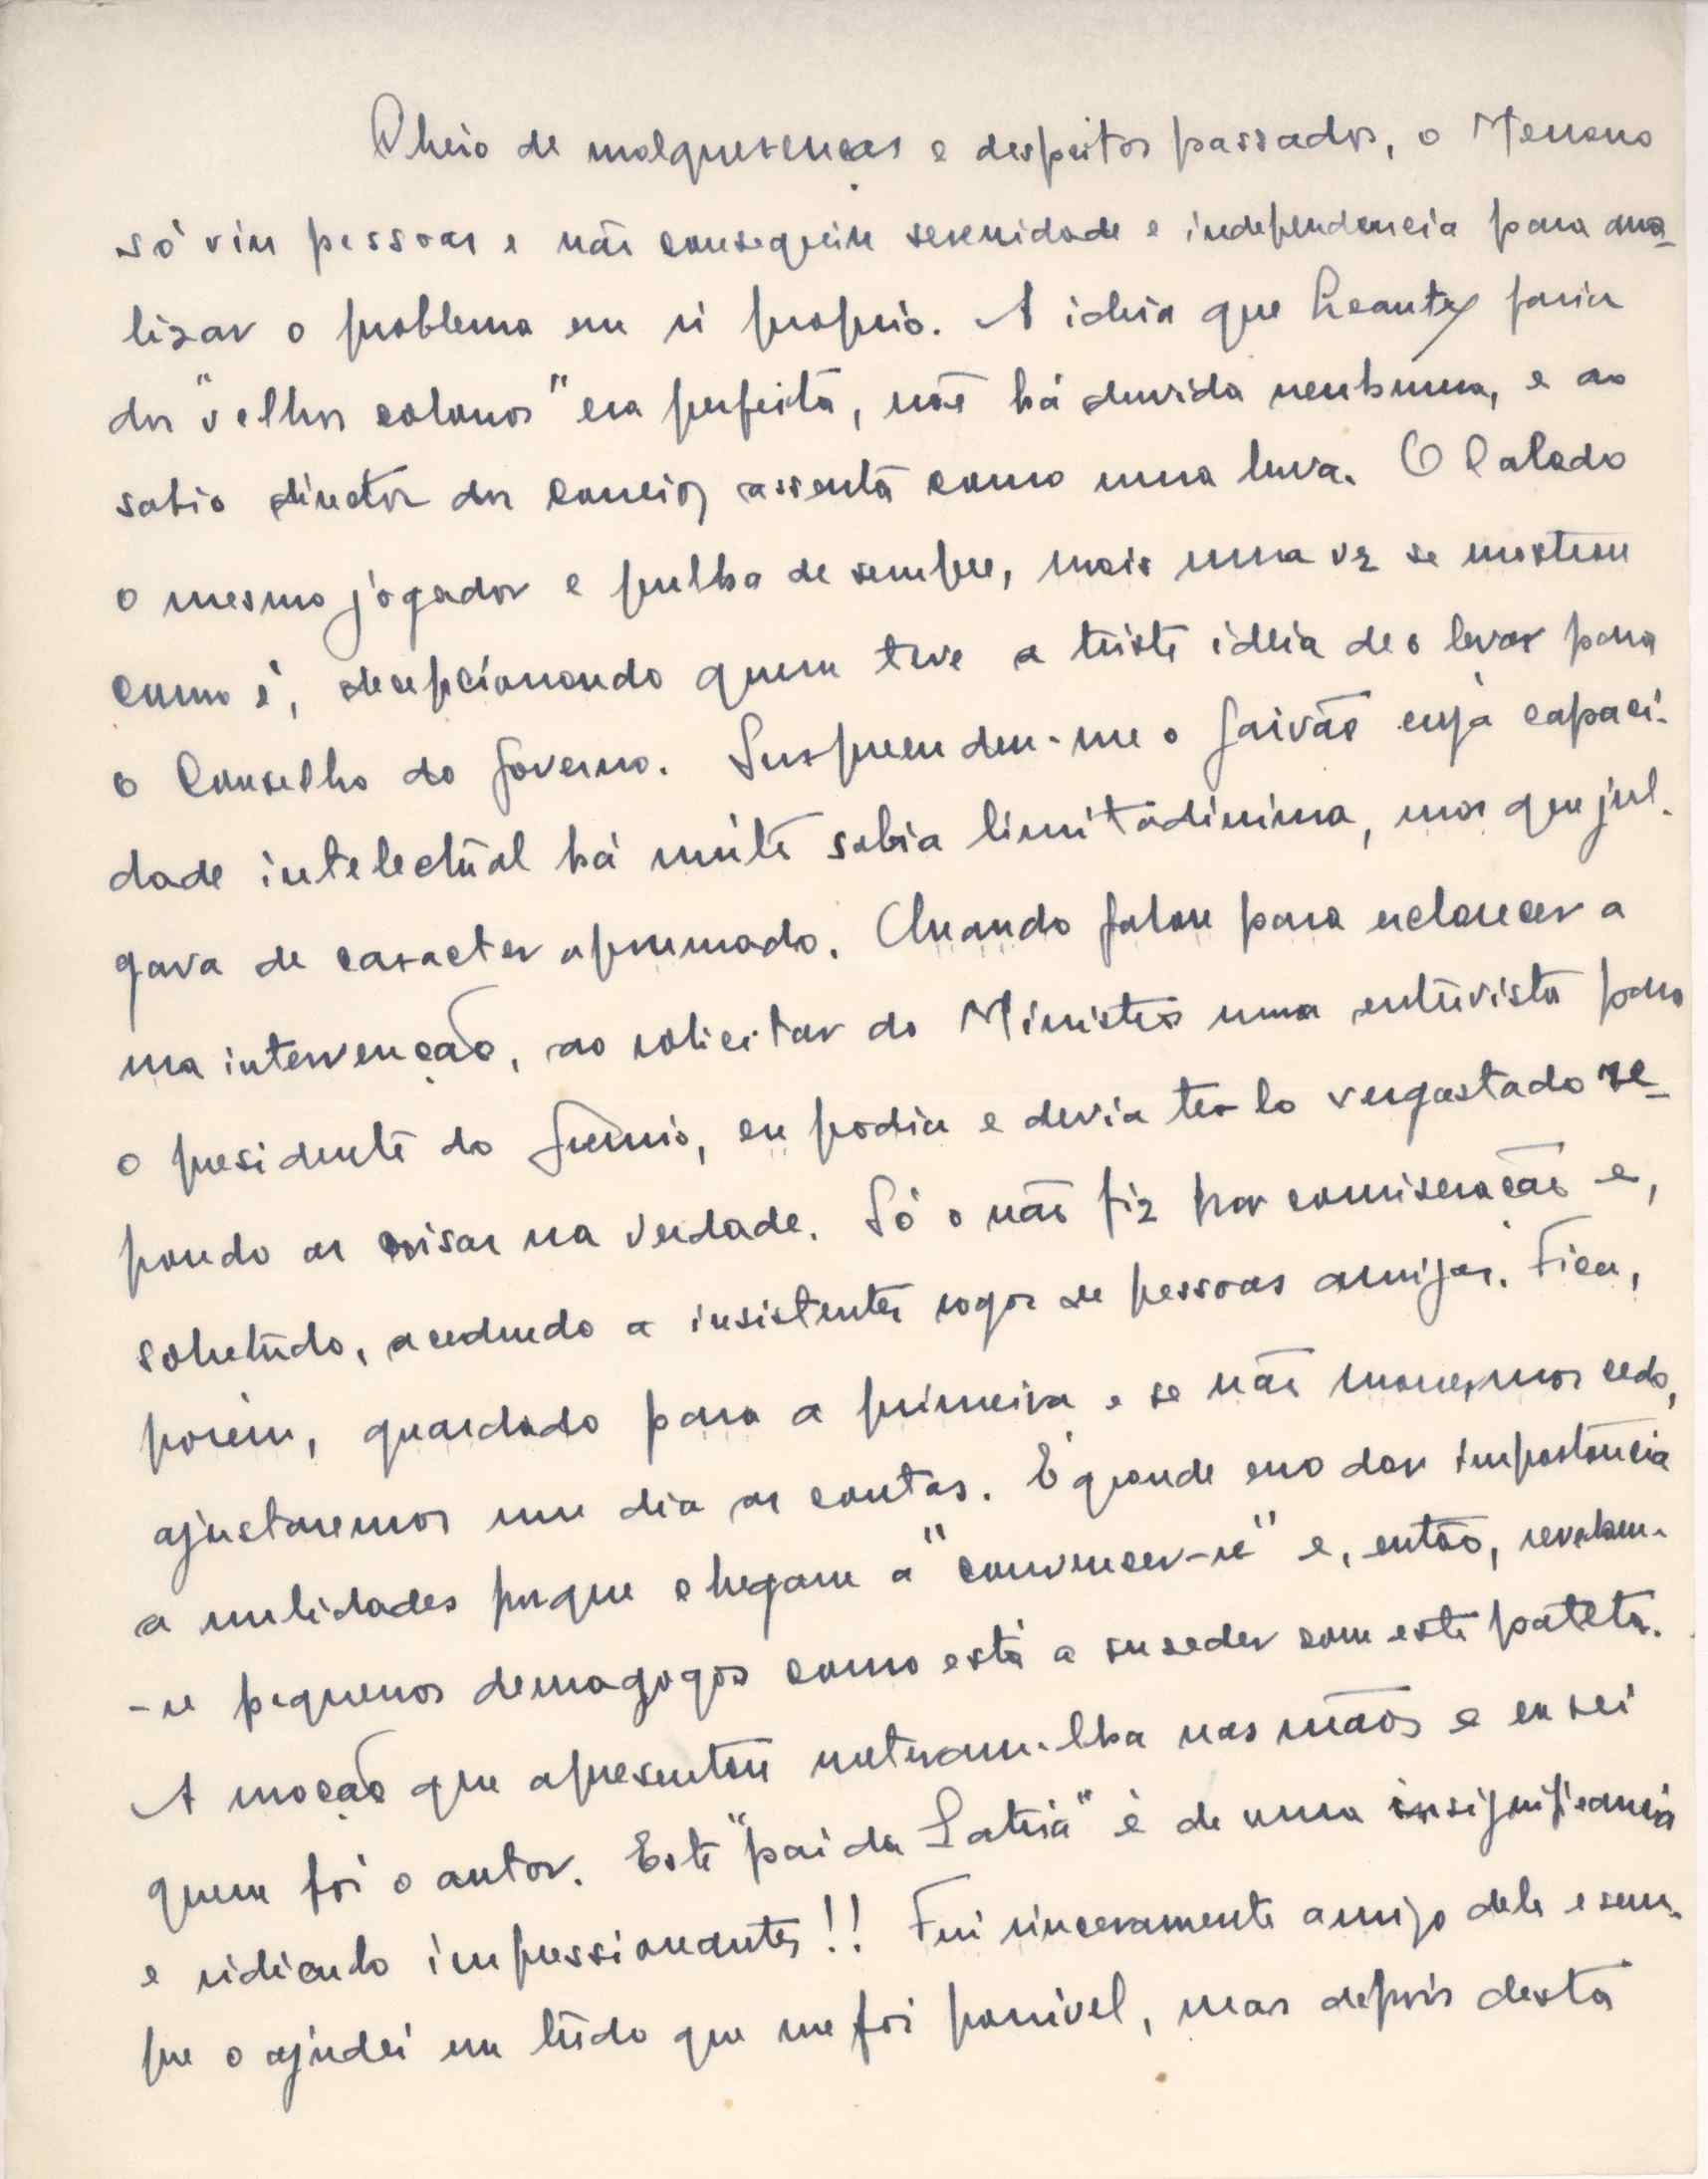 Cheio de malquerenças e despeitos passados, o Menano
só viu pessoas e não conseguiu serenidade e independencia para ana-
lizar o problema em si proprio. A ideia que Leautey fazia
dos "velhos colonos" era perfeita, não há duvida nenhuma, e ao
sabio director dos correios assenta como uma luva. O Calado
o mesmo jogador e pulha de sempre, mais uma vez se mostrou
como é, decepcionando quem teve a triste ideia de o levar para
o Conselho do Governo. Surpreendeu-me o Gaivão cuja capaci-
dade intelectual há muito sabia limitadissima, mas que jul-
gava de caracter aprumado. Quando falou para esclarecer a
sua intervenção, ao solicitar do Ministro uma entrevista para
o presidente do Gremio, eu podia e devia te-lo vergastado re-
pondo as coisas na verdade. Só o não fiz por comiseração e,
sobretudo, acedendo a insistentes rogos de pessoas amigas. Fica,
porém, guardado para a primeira e se não morrermos cedo,
ajustaremos um dia as contas. É grande erro dar importancia
a nulidades porque chegam a "convencer-se" e, então, revelam-
-se pequenos demagogos como está a suceder com este pateta.
A moção que apresentou meteram-lha nas mãos e eu sei
quem foi o autor. Este "pai da Patria" é de uma insignificancia
e ridiculo impressionantes!! Fui sinceramente amigo dele e sem-
pre o ajudei em tudo que me foi possivel, mas depois desta